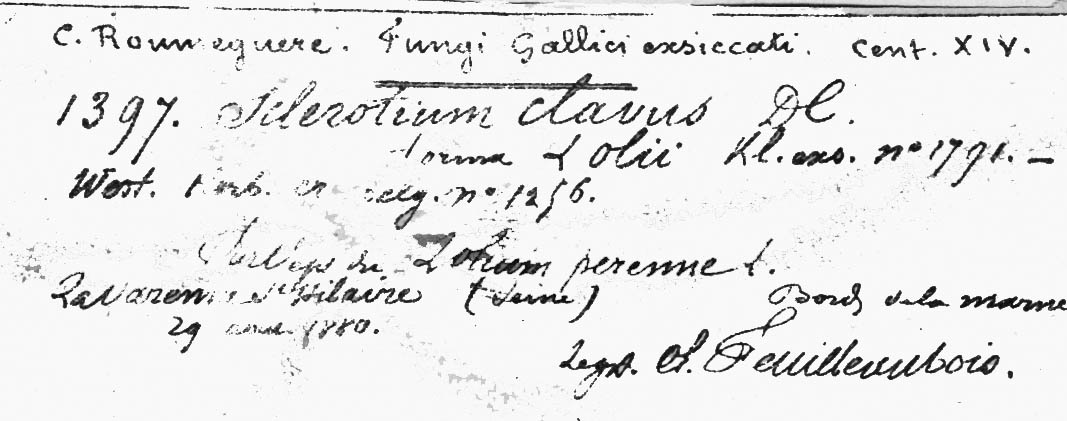 C. Roumeguere. Fungi Gallici exsiccati. Cent. XIV.
1397. Sclerotium clavus DC.
forma Lolii Kl. exs. nº 1791. —
West. Herb. nº 1256.
Lolium perenne L.
La Varenne St Hilaire (Seine) Bords de la marne
29 1880.
Legit. Ch. Feuilleaubois.